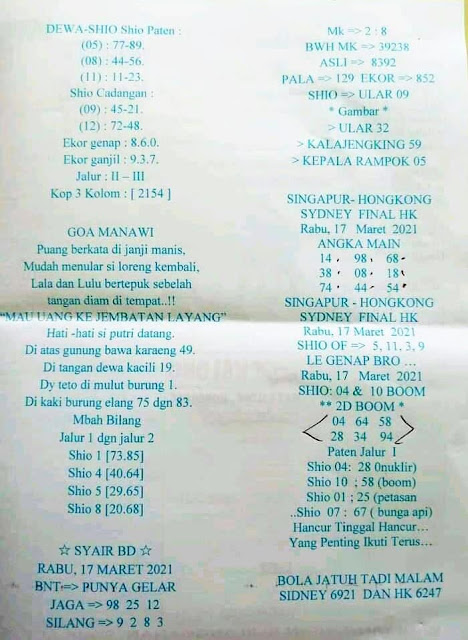 DEWA-SHIO Shio Paten :
(05) : 77-89.
(08) : 44-56.
(11) : 11-23.
Shio Cadangan :
(09) : 45-21.
(12) : 72-48.
Ekor genap : 8.6.0.
Ekor ganjil : 9.3.7.
Jalur : II – III
Kop 3 Kolom : [ 2154 ]
GOA MANAWI
Puang berkata di janji manis,
Mudah menular si loreng kembali,
Lala dan Lulu bertepuk sebelah
tangan diam di tempat..!!
“MAU UANG KE JEMBATAN LAYANG”
Hati -hati si putri datang.
Di atas gunung bawa karaeng 49.
Di tangan dewa kacili 19.
Dy teto di mulut burung 1.
Di kaki burung elang 75 dgn 83.
Mbah Bilang
Jalur 1 dgn jalur 2
Shio 1 [73.85]
Shio 4 [40.64]
Shio 5 [29.65]
Shio 8 [20.68]
☆ SYAIR BD ☆
RABU, 17 MARET 2021
BNT => PUNYA GELAR
JAGA => 98 25 12
SILANG => 9 2 8 3
Mk => 2 : 8
BWH MK => 39238
ASLI => 8392
PALA => 129 EKOR => 852
SHIO => ULAR 09
* Gambar *
> ULAR 32
> KALAJENGKING 59
> KEPALA RAMPOK 05
SINGAPUR- HONGKONG
SYDNEY FINAL HK
Rabu, 17 Maret 2021
ANGKA MAIN
14 , 98, 68
38 , 08 , 18
74 , 44 , 54
SINGAPUR - HONGKONG
SYDNEY FINAL HK
Rabu, 17 Maret 2021
SHIO OF => 5, 11, 3, 9
LE GENAP BRO ...
Rabu, 17 Maret 2021
SHIO: 04 & 10 BOOM
** 2D BOOM *
04 64 58
28 34 94
Paten Jalur I
Shio 04: 28 0nuklir)
Shio 10 ; 58 (boom)
Shio 01 ; 25 (petasan
..Shio 07 : 67 ( bunga api)
Hancur Tinggal Hancur...
Yang Penting Ikuti Terus...
BOLA JATUH TADI MALAM
SIDNEY 6921 DAN HK 6247